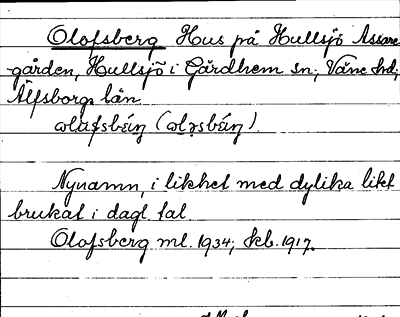 Olofsberg Hus på Hullsjö Assare
gården, Hullsjö i Gärdhem sn; Väne hd;
Älfsborgs län
Nynamn, i likhet med dylika likt
brukat i dagl. tal.
Olofsberg ml. 1934; kb. 1917.